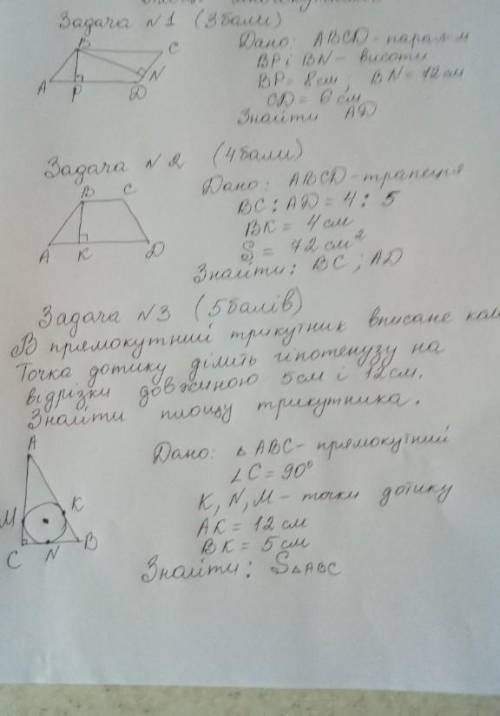 Задача №1 (3 бали)
B
C
A
P
D
N
Дано: ABCD - парал-м
BP і BN - висоти
BP = 8 см; BN = 12 см
CD = 6 см
Знайти AD
Задача №2 (4 бали)
B C
A K D
Дано: ABCD - трапеція
BC : AD = 4 : 5
BK = 4 см
S = 72 см²
Знайти: BC; AD
Задача №3 (5 балів)
В прямокутний трикутник вписане кол
Точка дотику ділить гіпотенузу на
відрізки довжиною 5 см і 12 см.
Знайти площу трикутника.
A
M
K
C N B
Дано: △ABC - прямокутний
∠C = 90°
K, N, M - точки дотику
AK = 12 см
BK = 5 см
Знайти: S△ABC